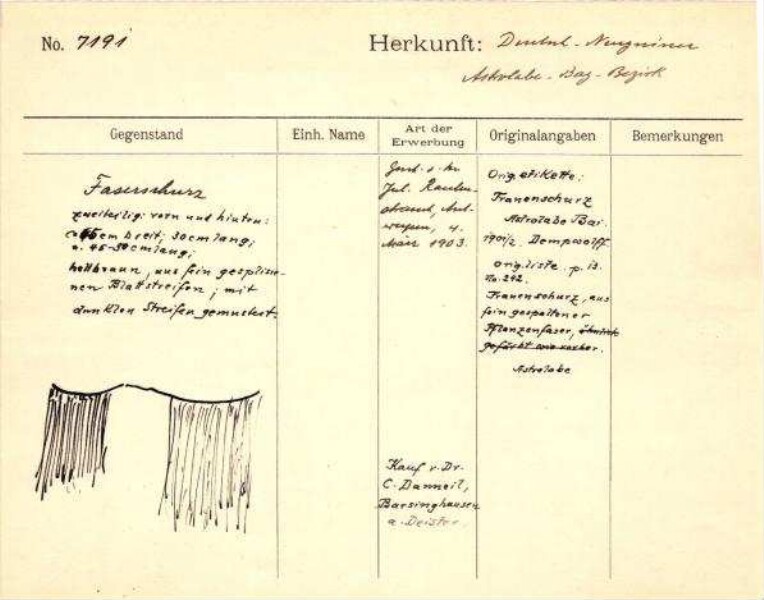 No. 7191
Herkunft: Deutsch-Neuguinea
Astrolabe-Bay-Bezirk
Gegenstand
Einh. Name
Art der
Erwerbung
Originalangaben
Bemerkungen
Faserschurz
zweiteilig: vorn und hinten:
breit; 30cm lang;
u. 45-50cm lang;
hellbraun, aus fein gesplisse-
nen Blattstreifen; mit
dunklen Streifen gemustert.
Jul.
März 1903.
Kauf v. Dr.
C. Danneil,
Barsinghausen
a. Deister.
Orig. etikette:
Frauenschurz
Astrolabe Bai.
1901/2. Dempwolff
Orig. liste. p. 13.
No. 242.
Frauenschurz, aus
fein gespaltener
Pflanzenfaser, ähnlich
gefärbt wie vorher.
Astrolabe